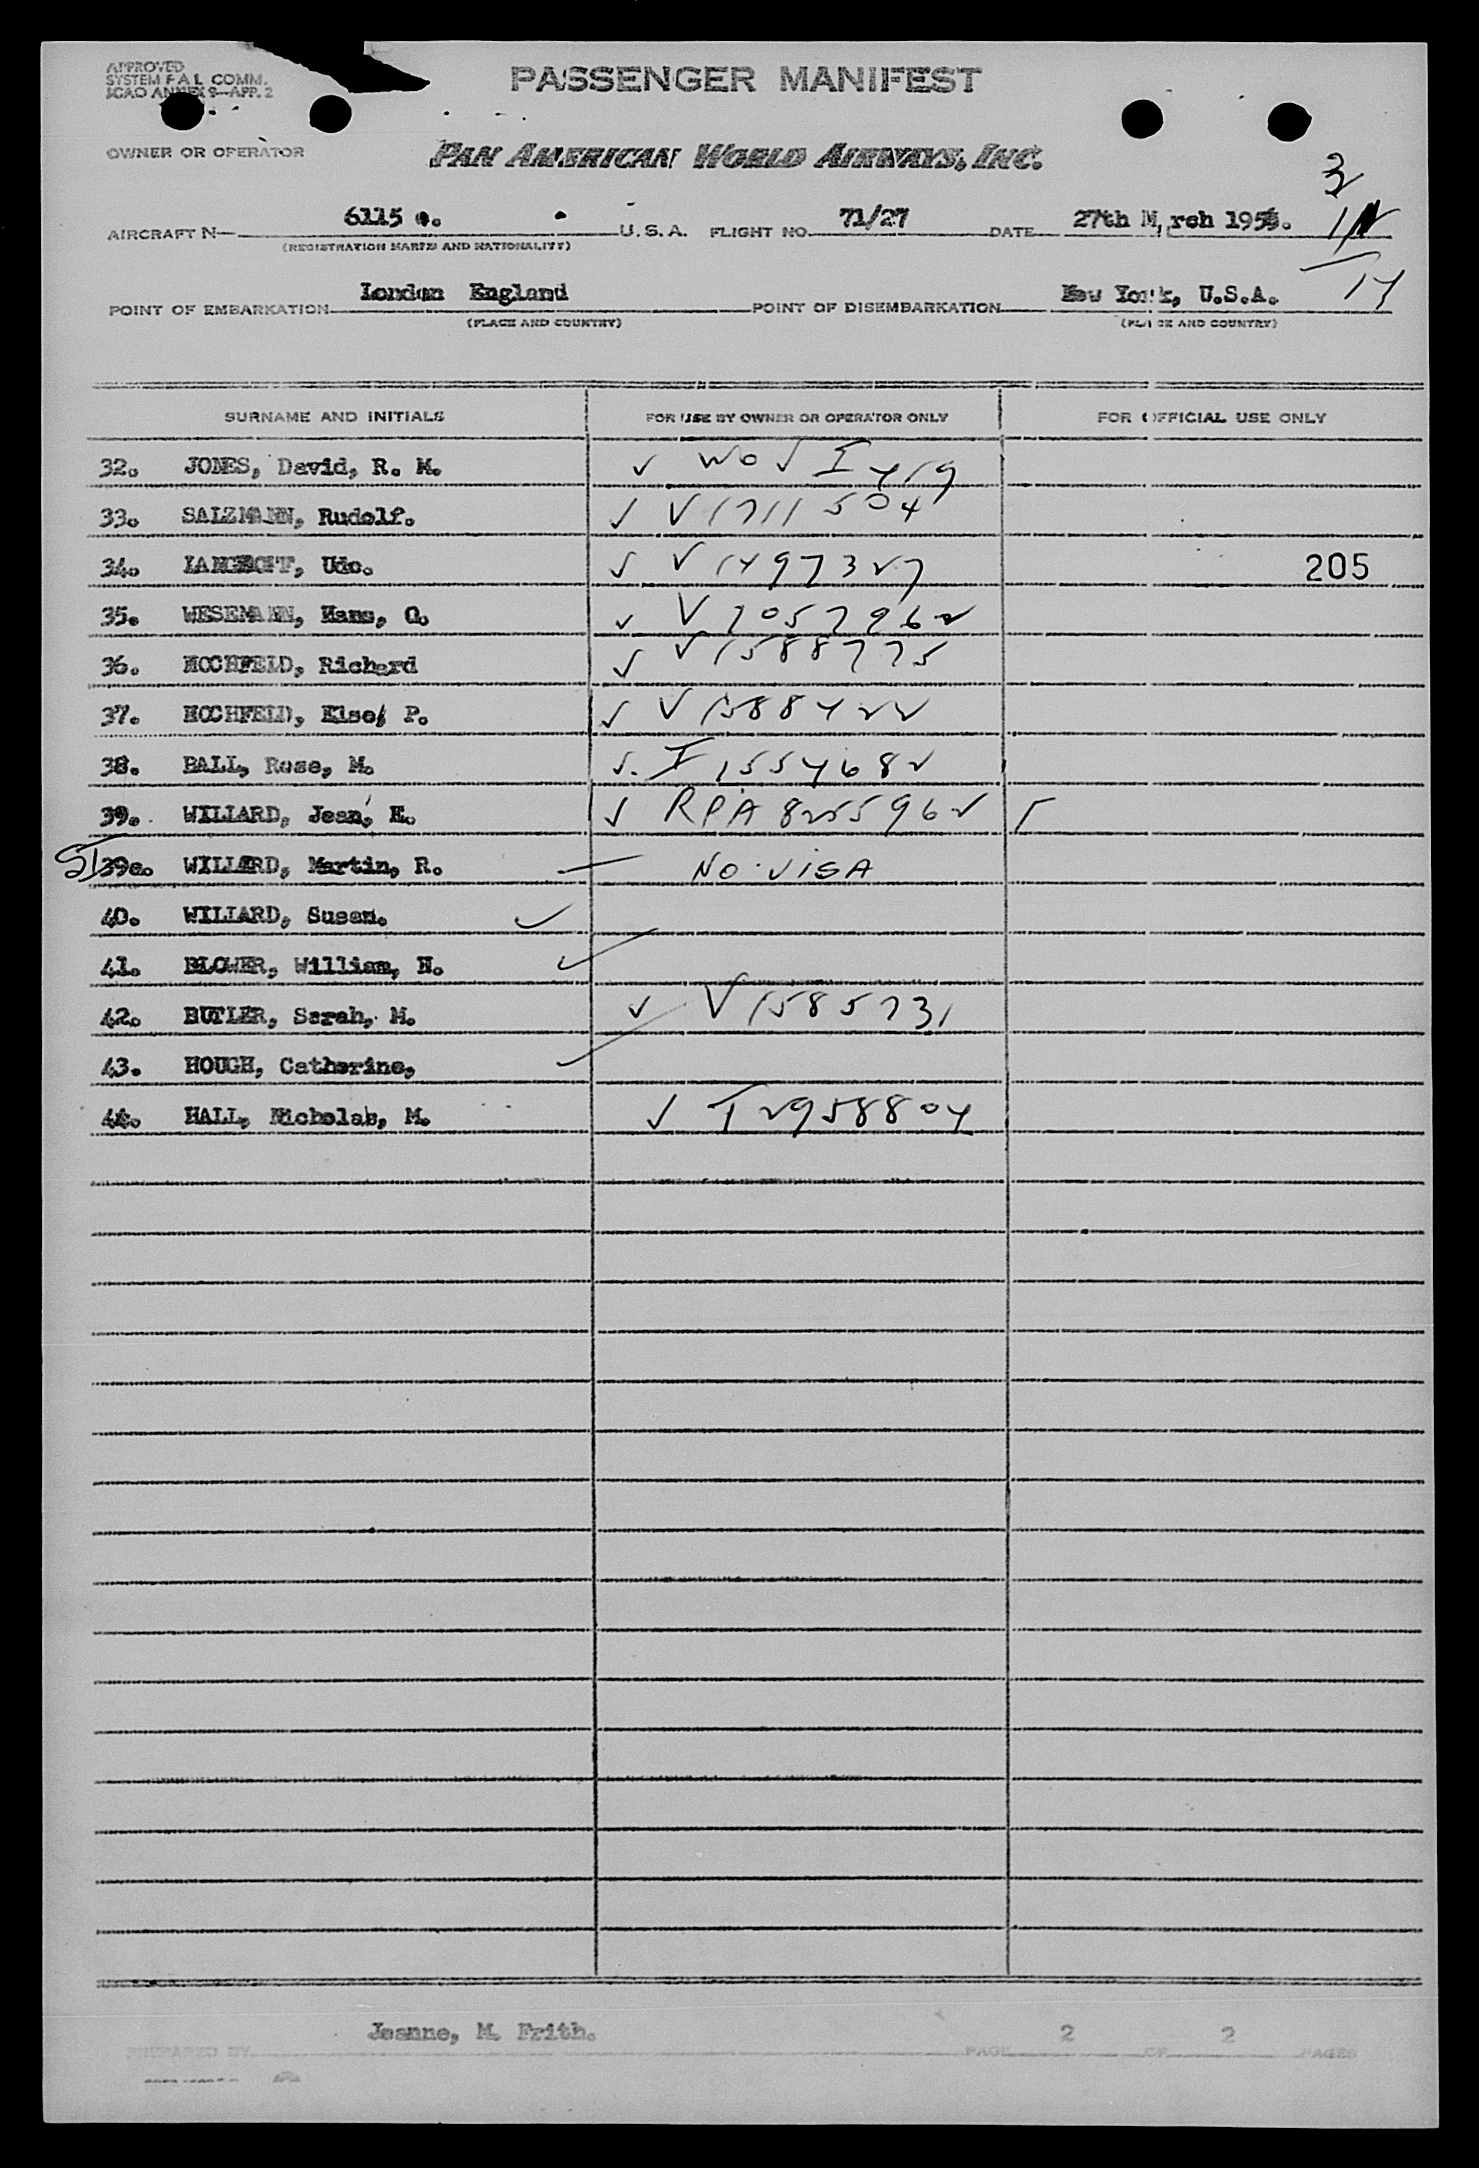 APPROVED
SYSTEM FAL COMM.
ICAO ANNEX 9—APP. 2
PASSENGER MANIFEST
OWNER OR OPERATOR
PAN AMERICAN WORLD AIRWAYS, INC.
3
AIRCRAFT N— 6115 U.S.A. FLIGHT NO. 71/27 DATE 27th March
(REGISTRATION MARKS AND NATIONALITY)
14
POINT OF EMBARKATION London England POINT OF DISEMBARKATION New York, U.S.A.
(PLACE AND COUNTRY) (PLACE AND COUNTRY)
SURNAME AND INITIALS FOR USE BY OWNER OR OPERATOR ONLY FOR OFFICIAL USE ONLY
32. JONES, David, R. M. ✓ I 419
33. SALZMANN, Rudolf. ✓ V1711504
34. Udo. ✓ V1497327 205
35. WESEMANN, Hans, O. ✓ V7057962
36. HOCHFELD, Richard ✓ V1588775
37. HOCHFELD, Else, P. ✓ V1588422
38. BALL, Rose, M. ✓. I 1554682
39. WILLARD, Jean, E. ✓ RPA 825596 ✓
39a. WILLARD, Martin, R. — NO VISA
40. WILLARD, Susan. ✓
41. BLOWER, William, H. ✓
42. BUTLER, Sarah, M. ✓ V1585731
43. HOUGH, Catherine, ✓
44. HALL, Nicholas, M. ✓ I 2958804
Jeanne, M. Frith.
PREPARED BY PAGE 2 OF 2 PAGES